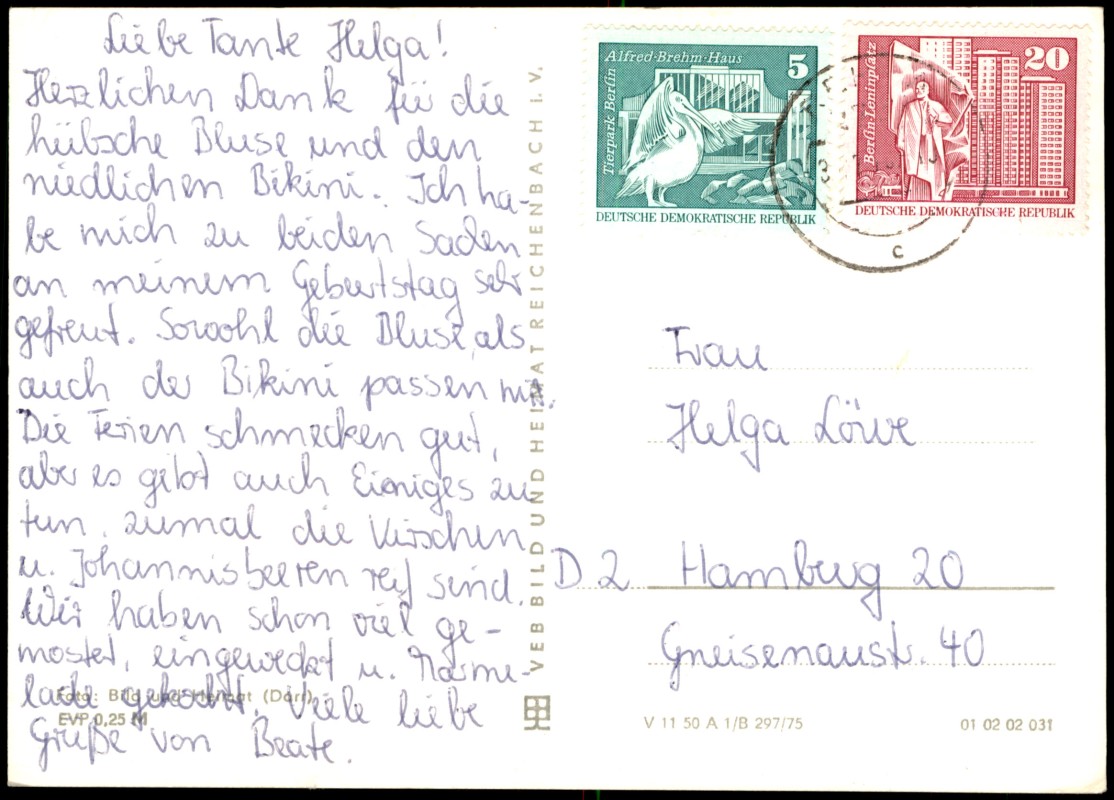 Liebe Tante Helga!
Herzlichen Dank für die
hübsche Bluse und den
niedlichen Bikini. Ich ha-
be mich zu beiden Sachen
an meinem Geburtstag sehr
gefreut. Sowohl die Bluse, als
auch der Bikini passen mir.
Die Ferien schmecken gut,
aber es gibt auch Einiges zu
tun, zumal die Kirschen
u. Johannisbeeren reif sind.
Wir haben schon viel ge-
mostet, eingeweckt u. Marme-
lade gekocht. Viele liebe
Grüße von Beate.
Foto: Bild und Heimat (Dörr)
EVP 0,25 M
VEB BILD UND HEIMAT REICHENBACH i. V.
Tierpark Berlin
Alfred-Brehm-Haus
5
DEUTSCHE DEMOKRATISCHE REPUBLIK
Berlin-Leninplatz
20
DEUTSCHE DEMOKRATISCHE REPUBLIK
c
Frau
Helga Löwe
D 2 Hamburg 20
Gneisenaustr. 40
V 11 50 A 1/B 297/75
01 02 02 031